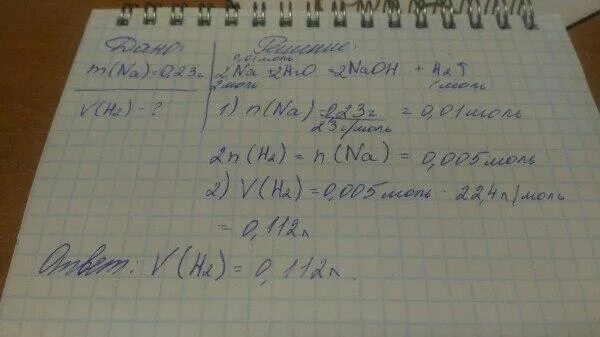 Дано:
m(Na)=0,23г
V(H2) - ?
Решение:
0,01моль
2Na 2H2O = 2NaOH + H2↑
2моль 1моль
1) n(Na) = 0,23г / 23г/моль = 0,01моль
2n(H2) = n(Na) = 0,005моль
2) V(H2) = 0,005моль · 22,4л/моль
= 0,112л
Ответ: V(H2) = 0,112л.